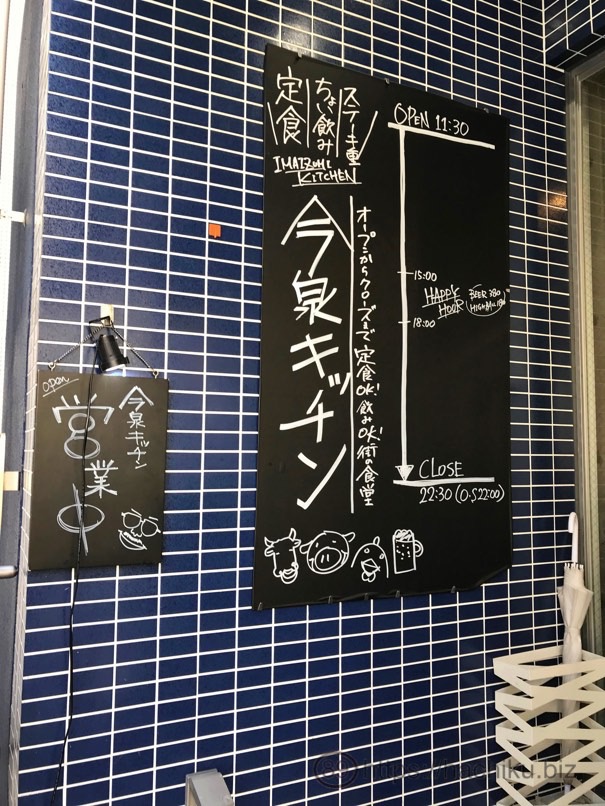 定食
ちょい飲み
ステーキ重
IMAIZUMI
KITCHEN
今泉キッチン
オープンからクローズまで 定食OK! 飲みOK! 街の食堂
OPEN 11:30
15:00
HAPPY
HOUR
BEER 380
HIGHBALL 180
18:00
CLOSE
22:30 (O.S 22:00)
open
今泉キッチン
営業中
https://bachiku.biz